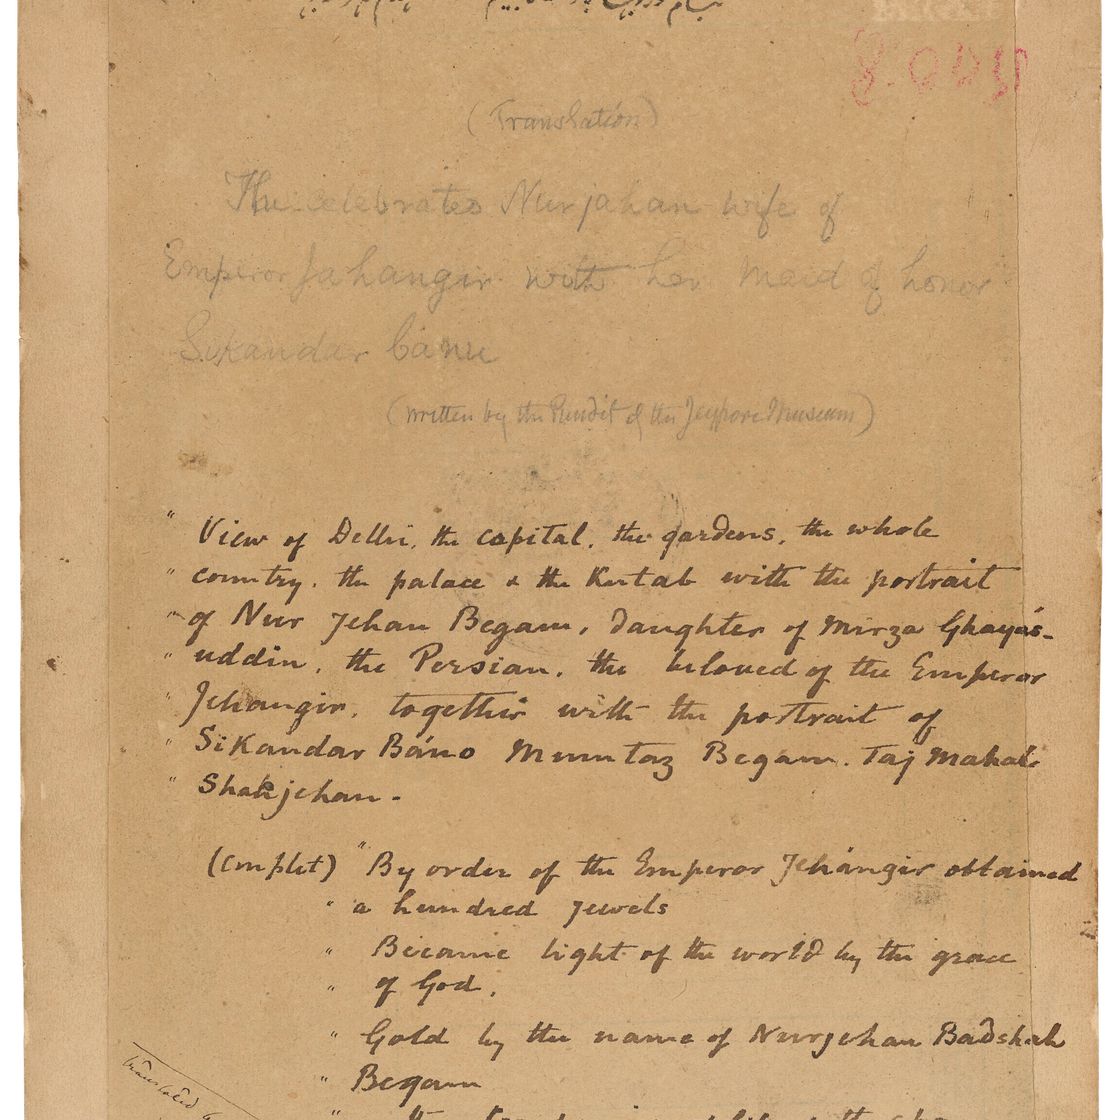 (Translation)
The celebrated Nurjahan wife of
Emperor Jahangir with her maid of honor
Sikandar bánu
(written by the Pundit of the Jeypore Museum)
" View of Delhi, the capital, the gardens, the whole
" country, the palace & the Kutab with the portrait
" of Nur Jehan Begam, daughter of Mirza Ghayás-
" uddin, the Persian, the beloved of the Emperor
" Jehangir, together with the portrait of
" Sikandar Báno Mumtaz Begam. Taj Mahal.
" Shahjehan -
(Cmplet) " By order of the Emperor Jehángir obtained
" a hundred jewels
" Became light of the world by the grace
" of God.
" Gold by the name of Nurjehan Badshah
" Begam
translated